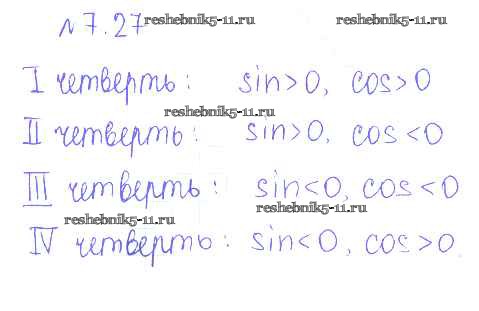 №7.27 reshebnik5-11.ru reshebnik5-11.ru
I четверть: sin>0, cos>0
reshebnik5-11.ru
II четверть: sin>0, cos<0
III четверть: sin<0, cos<0
reshebnik5-11.ru reshebnik5-11.ru
IV четверть: sin<0, cos>0